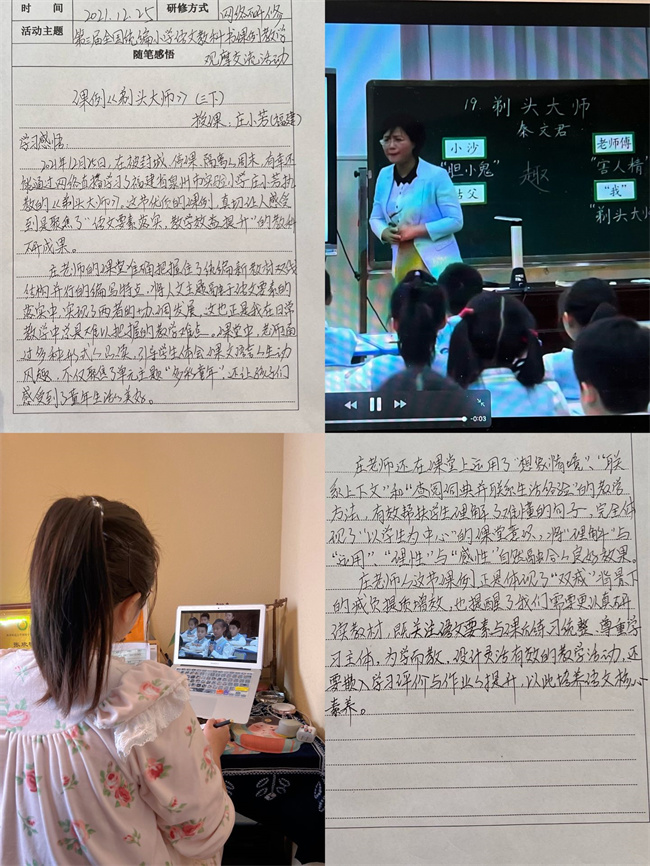 时 间
2021.12.25
研修方式
网络研修
活动主题
第三届全国统编小学语文教科书课例教学
观摩交流活动
随笔感悟
课例《剃头大师》(三下)
授课:庄小芳(福建)
学习感悟:
2021年12月25日,在被封城、停课、隔离的周末,有幸还
能通过网络直播学习了福建省泉州市实验小学庄小芳执
教的《剃头大师》。这节优质的课例,真切让人感受
到是聚焦了"语文要素落实,教学效率提升"的教科
研成果。
庄老师的课堂准确把握住了统编新教材双线
结构并行的编写特点,将人文主题寓于语文要素的
落实中,实现了两者的协调发展,这也正是我在日常
教学中总是难以把握的教学难点。课堂中,老师通
过多种形式的品读,引导学生体会课文语言的生动
风趣,不仅聚焦了单元主题"多彩童年",还让孩子们
感受到了童年生活的美好。
19.剃头大师
秦文君
小沙
"胆小鬼"
姑父
趣
老师傅
"害人精"
"我"
"剃头大师
-0:03
庄老师还在课堂上运用了"想象情境"、"联
系上下文"和"查阅词典并联系生活经验"的教学
方法,有效帮扶学生理解了难懂的句子,完全体
现了"以学生为中心"的课堂意识,将"理解"与
"运用"、"理性"与"感性"自然融合的良好效果。
庄老师的这节课例正是体现了"双减"背景下
的减负提质增效,也提醒了我们需要更认真研
读教材,既关注语文要素与课后练习统整,尊重学
习主体,为学而教,设计灵活有效的教学活动,还
要嵌入学习评价与作业的提升,以此培养语文核心
素养。